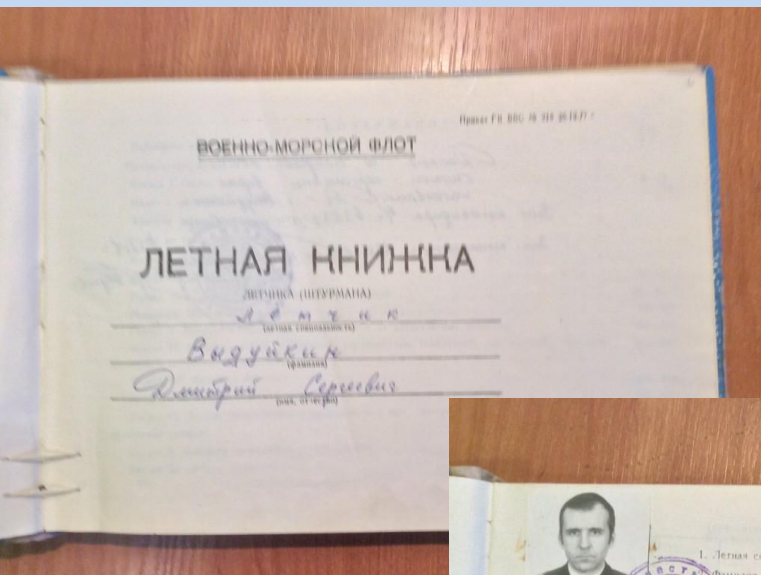 ВОЕННО-МОРСКОЙ ФЛОТ
ЛЕТНАЯ КНИЖКА
ЛЕТЧИКА (ШТУРМАНА)
летчик
(летная специальность)
Выдуйкин
(фамилия)
Дмитрий Сергеевич
(имя, отчество)
1. Летная